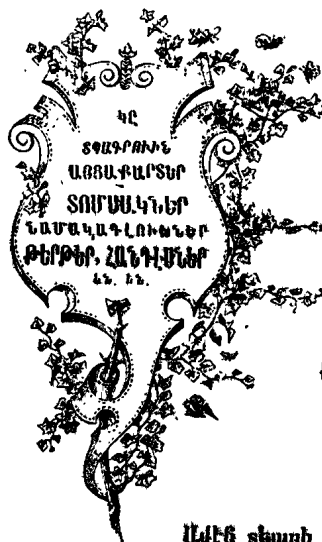 ԿԸ
ՏՊԱԳՐՈՒԻՆ
ԱՅՑԱՔԱՐՏԵՐ
ՏՈՄՍԱԿՆԵՐ
ՆԱՄԱԿԱԳԼՈՒԽՆԵՐ
ԹԵՐԹԵՐ, ՀԱՆԴԷՍՆԵՐ
ևն. ևն.
Ամէն տեսակի